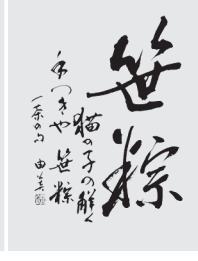 笹粽
猫の子の解く
手つきや笹粽
一茶の句 由美